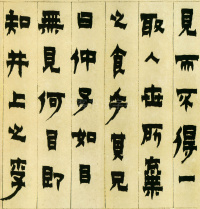 見而不得一
取人世所棄
之食乎兄
曰仲子如目
無見何目即
知井上之李